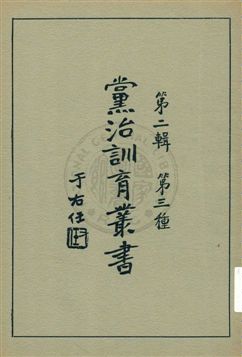 第二輯　第三種
黨治訓育叢書
于右任